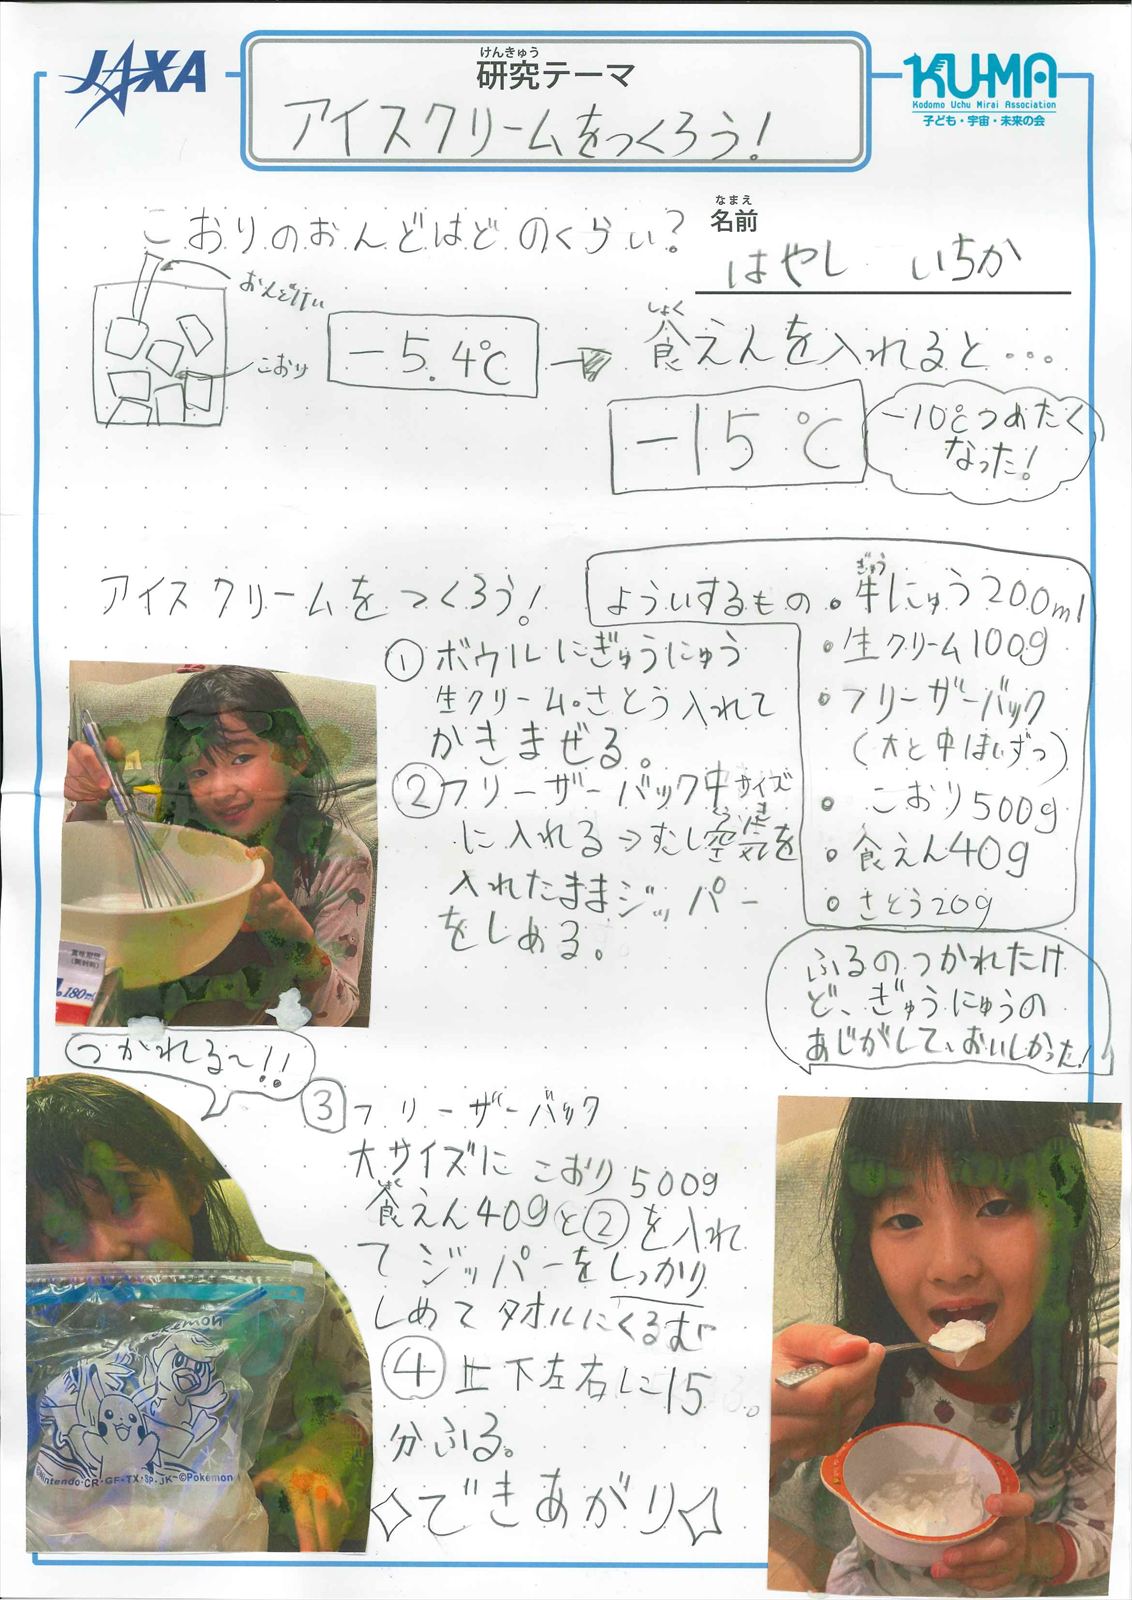 JAXA
けんきゅう
研究テーマ
アイスクリームをつくろう!
KU-MA
Kodomo Uchu Mirai Association
子ども・宇宙・未来の会
こおりのおんどはどのくらい?
なまえ
名前
はやし いちか
おんどけい
こおり
-5.4℃
しょく
食えんを入れると・・・
-15℃
-10℃つめたく
なった!
アイスクリームをつくろう!
ようい するもの
ぎゅう
・牛にゅう200ml
・生クリーム100g
・フリーザーバック
(大と中1まいずつ)
・こおり500g
・食えん40g
・さとう20g
①ボウルにぎゅうにゅう
生クリーム・さとう入れて
かきまぜる。
②フリーザーバック中サイズ
くうき
に入れる→すこし空気を
入れたままジッパー
をしめる。
賞味期限
(開封前)
180ml
ふるのつかれたけ
ど、ぎゅうにゅうの
あじがして、おいしかった!
つかれる〜!!
③フリーザーバック
大サイズにこおり500g
しょく
食えん40gと②を入れ
てジッパーをしっかり
しめてタオルにくるむ
④上下左右に15
分ふる。
できあがり
Pokemon
©Nintendo・CR・GF・TX・SP・JK ©Pokémon